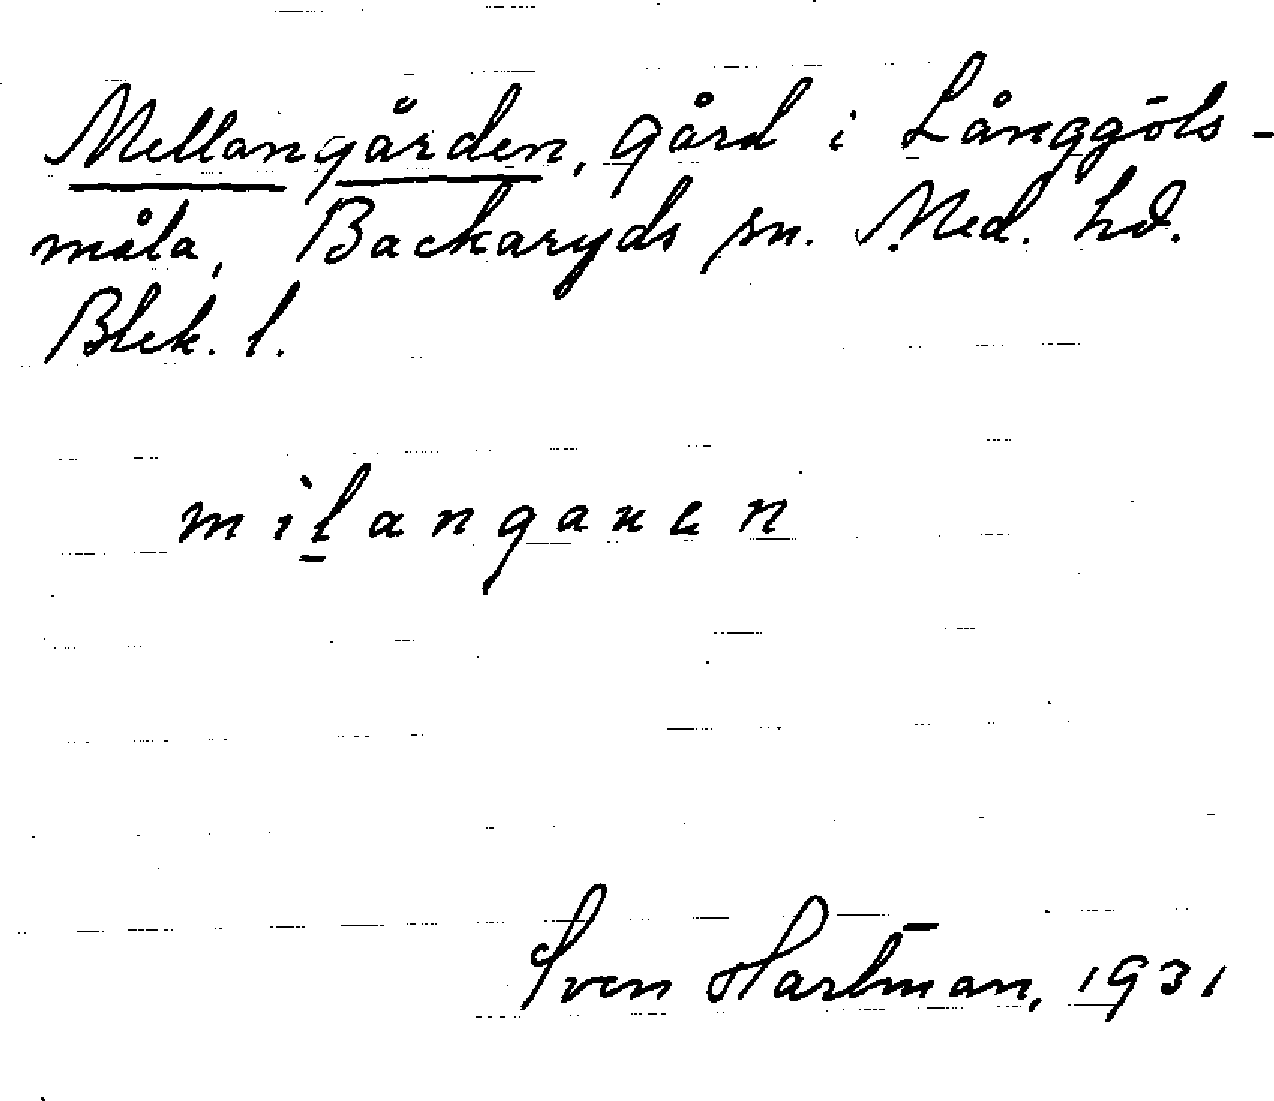 Mellangården, gård i Långgöls-
måla, Backaryds sn. Med. hd.
Blek. l.
mìl̠angaʀen
Sven Hartman, 1931